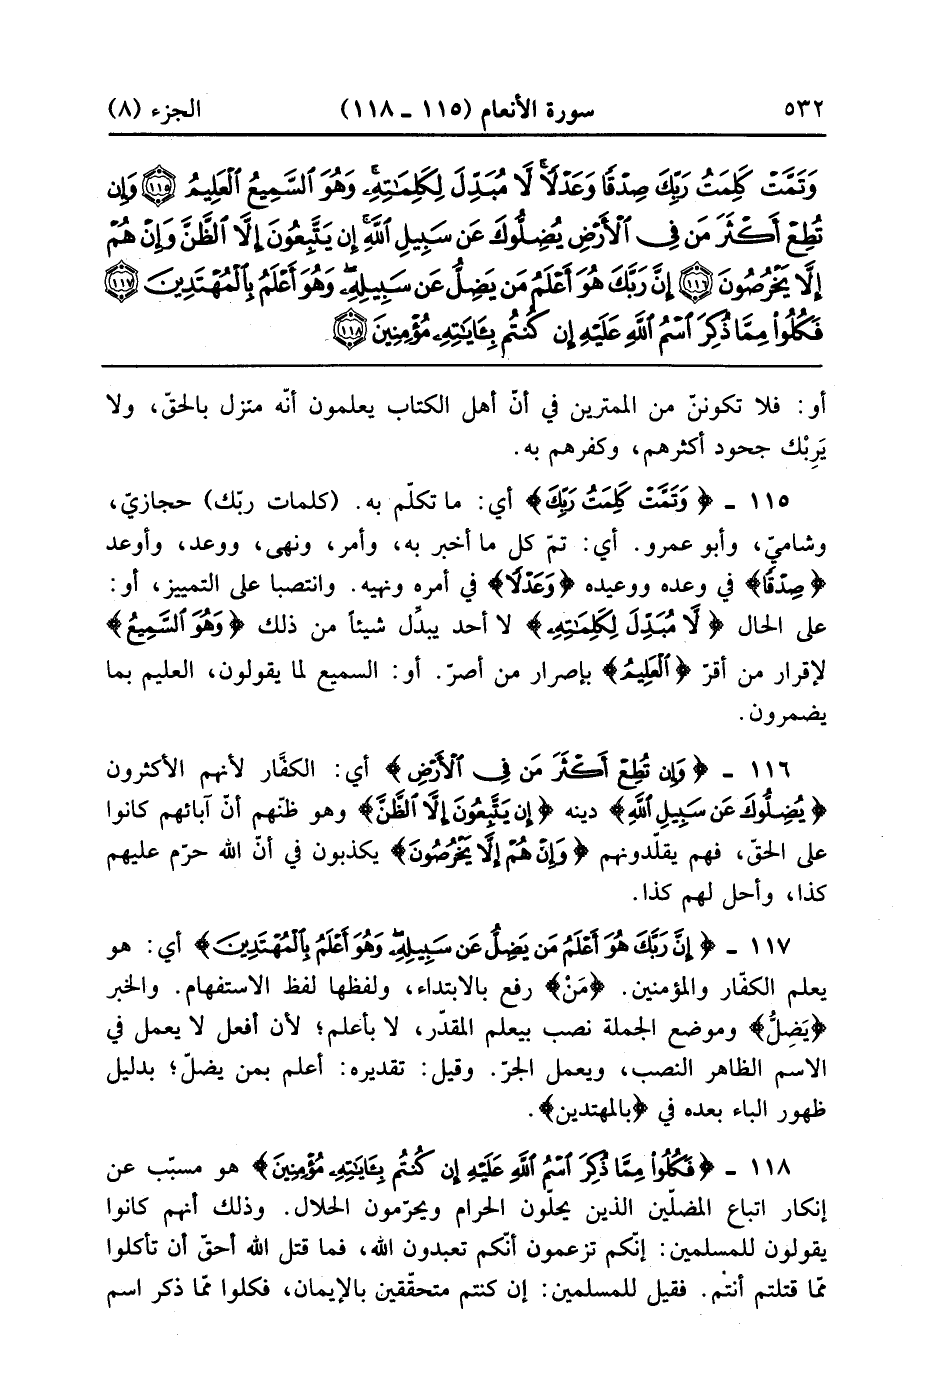 ٥٣٢ سورة الأنعام (١١٥ ـ ١١٨) الجزء (٨)
وَتَمَّتْ كَلِمَتُ رَبِّكَ صِدْقًا وَعَدْلًا ۚ لَّا مُبَدِّلَ لِكَلِمَٰتِهِۦ ۚ وَهُوَ ٱلسَّمِيعُ ٱلْعَلِيمُ ﴿١١٥﴾ وَإِن
تُطِعْ أَكْثَرَ مَن فِى ٱلْأَرْضِ يُضِلُّوكَ عَن سَبِيلِ ٱللَّهِ ۚ إِن يَتَّبِعُونَ إِلَّا ٱلظَّنَّ وَإِنْ هُمْ
إِلَّا يَخْرُصُونَ ﴿١١٦﴾ إِنَّ رَبَّكَ هُوَ أَعْلَمُ مَن يَضِلُّ عَن سَبِيلِهِۦ ۖ وَهُوَ أَعْلَمُ بِٱلْمُهْتَدِينَ ﴿١١٧﴾
فَكُلُوا۟ مِمَّا ذُكِرَ ٱسْمُ ٱللَّهِ عَلَيْهِ إِن كُنتُم بِـَٔايَٰتِهِۦ مُؤْمِنِينَ ﴿١١٨﴾
أو: فلا تكوننّ من الممترين في أنّ أهل الكتاب يعلمون أنّه منزل بالحقّ، ولا
يَرِبْك جحود أكثرهم، وكفرهم به.
١١٥ ـ ﴿وَتَمَّتْ كَلِمَتُ رَبِّكَ﴾ أي: ما تكلّم به. (كلمات ربّك) حجازيّ،
وشاميّ، وأبو عمرو. أي: تمّ كل ما أخبر به، وأمر، ونهى، ووعد، وأوعد
﴿صِدْقًا﴾ في وعده ووعيده ﴿وَعَدْلًا﴾ في أمره ونهيه. وانتصبا على التمييز، أو:
على الحال ﴿لَّا مُبَدِّلَ لِكَلِمَٰتِهِۦ﴾ لا أحد يبدِّل شيئاً من ذلك ﴿وَهُوَ ٱلسَّمِيعُ﴾
لإقرار من أقرّ ﴿ٱلْعَلِيمُ﴾ بإصرار من أصرّ. أو: السميع لما يقولون، العليم بما
يضمرون.
١١٦ ـ ﴿وَإِن تُطِعْ أَكْثَرَ مَن فِى ٱلْأَرْضِ﴾ أي: الكفَّار لأنهم الأكثرون
﴿يُضِلُّوكَ عَن سَبِيلِ ٱللَّهِ﴾ دينه ﴿إِن يَتَّبِعُونَ إِلَّا ٱلظَّنَّ﴾ وهو ظنّهم أنّ آبائهم كانوا
على الحقّ، فهم يقلّدونهم ﴿وَإِنْ هُمْ إِلَّا يَخْرُصُونَ﴾ يكذبون في أنّ الله حرّم عليهم
كذا، وأحل لهم كذا.
١١٧ ـ ﴿إِنَّ رَبَّكَ هُوَ أَعْلَمُ مَن يَضِلُّ عَن سَبِيلِهِۦ ۖ وَهُوَ أَعْلَمُ بِٱلْمُهْتَدِينَ﴾ أي: هو
يعلم الكفّار والمؤمنين. ﴿مَنْ﴾ رفع بالابتداء، ولفظها لفظ الاستفهام. والخبر
﴿يَضِلُّ﴾ وموضع الجملة نصب بيعلم المقدّر، لا بأعلم؛ لأن أفعل لا يعمل في
الاسم الظاهر النصب، ويعمل الجرّ. وقيل: تقديره: أعلم بمن يضلّ؛ بدليل
ظهور الباء بعده في ﴿بالمهتدين﴾.
١١٨ ـ ﴿فَكُلُوا۟ مِمَّا ذُكِرَ ٱسْمُ ٱللَّهِ عَلَيْهِ إِن كُنتُم بِـَٔايَٰتِهِۦ مُؤْمِنِينَ﴾ هو مسبّب عن
إنكار اتباع المضلّين الذين يحلّون الحرام ويحرّمون الحلال. وذلك أنهم كانوا
يقولون للمسلمين: إنّكم تزعمون أنّكم تعبدون الله، فما قتل الله أحقّ أن تأكلوا
ممّا قتلتم أنتم. فقيل للمسلمين: إن كنتم متحقّقين بالإيمان، فكلوا ممّا ذكر اسم